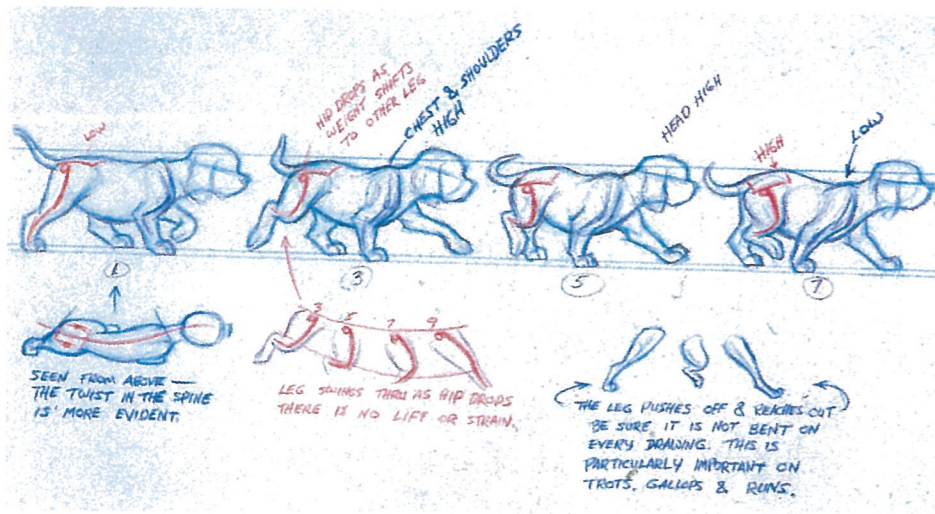 LOW
HIP DROPS AS
WEIGHT SHIFTS
TO OTHER LEG
CHEST & SHOULDERS
HIGH
HEAD HIGH
HIGH
LOW
1
3
5
7
3 5 7 9
SEEN FROM ABOVE —
THE TWIST IN THE SPINE
IS MORE EVIDENT.
LEG SWINGS THRU AS HIP DROPS
THERE IS NO LIFT OR STRAIN.
THE LEG PUSHES OFF & REACHES OUT
BE SURE IT IS NOT BENT ON
EVERY DRAWING. THIS IS
PARTICULARLY IMPORTANT ON
TROTS, GALLOPS & RUNS.